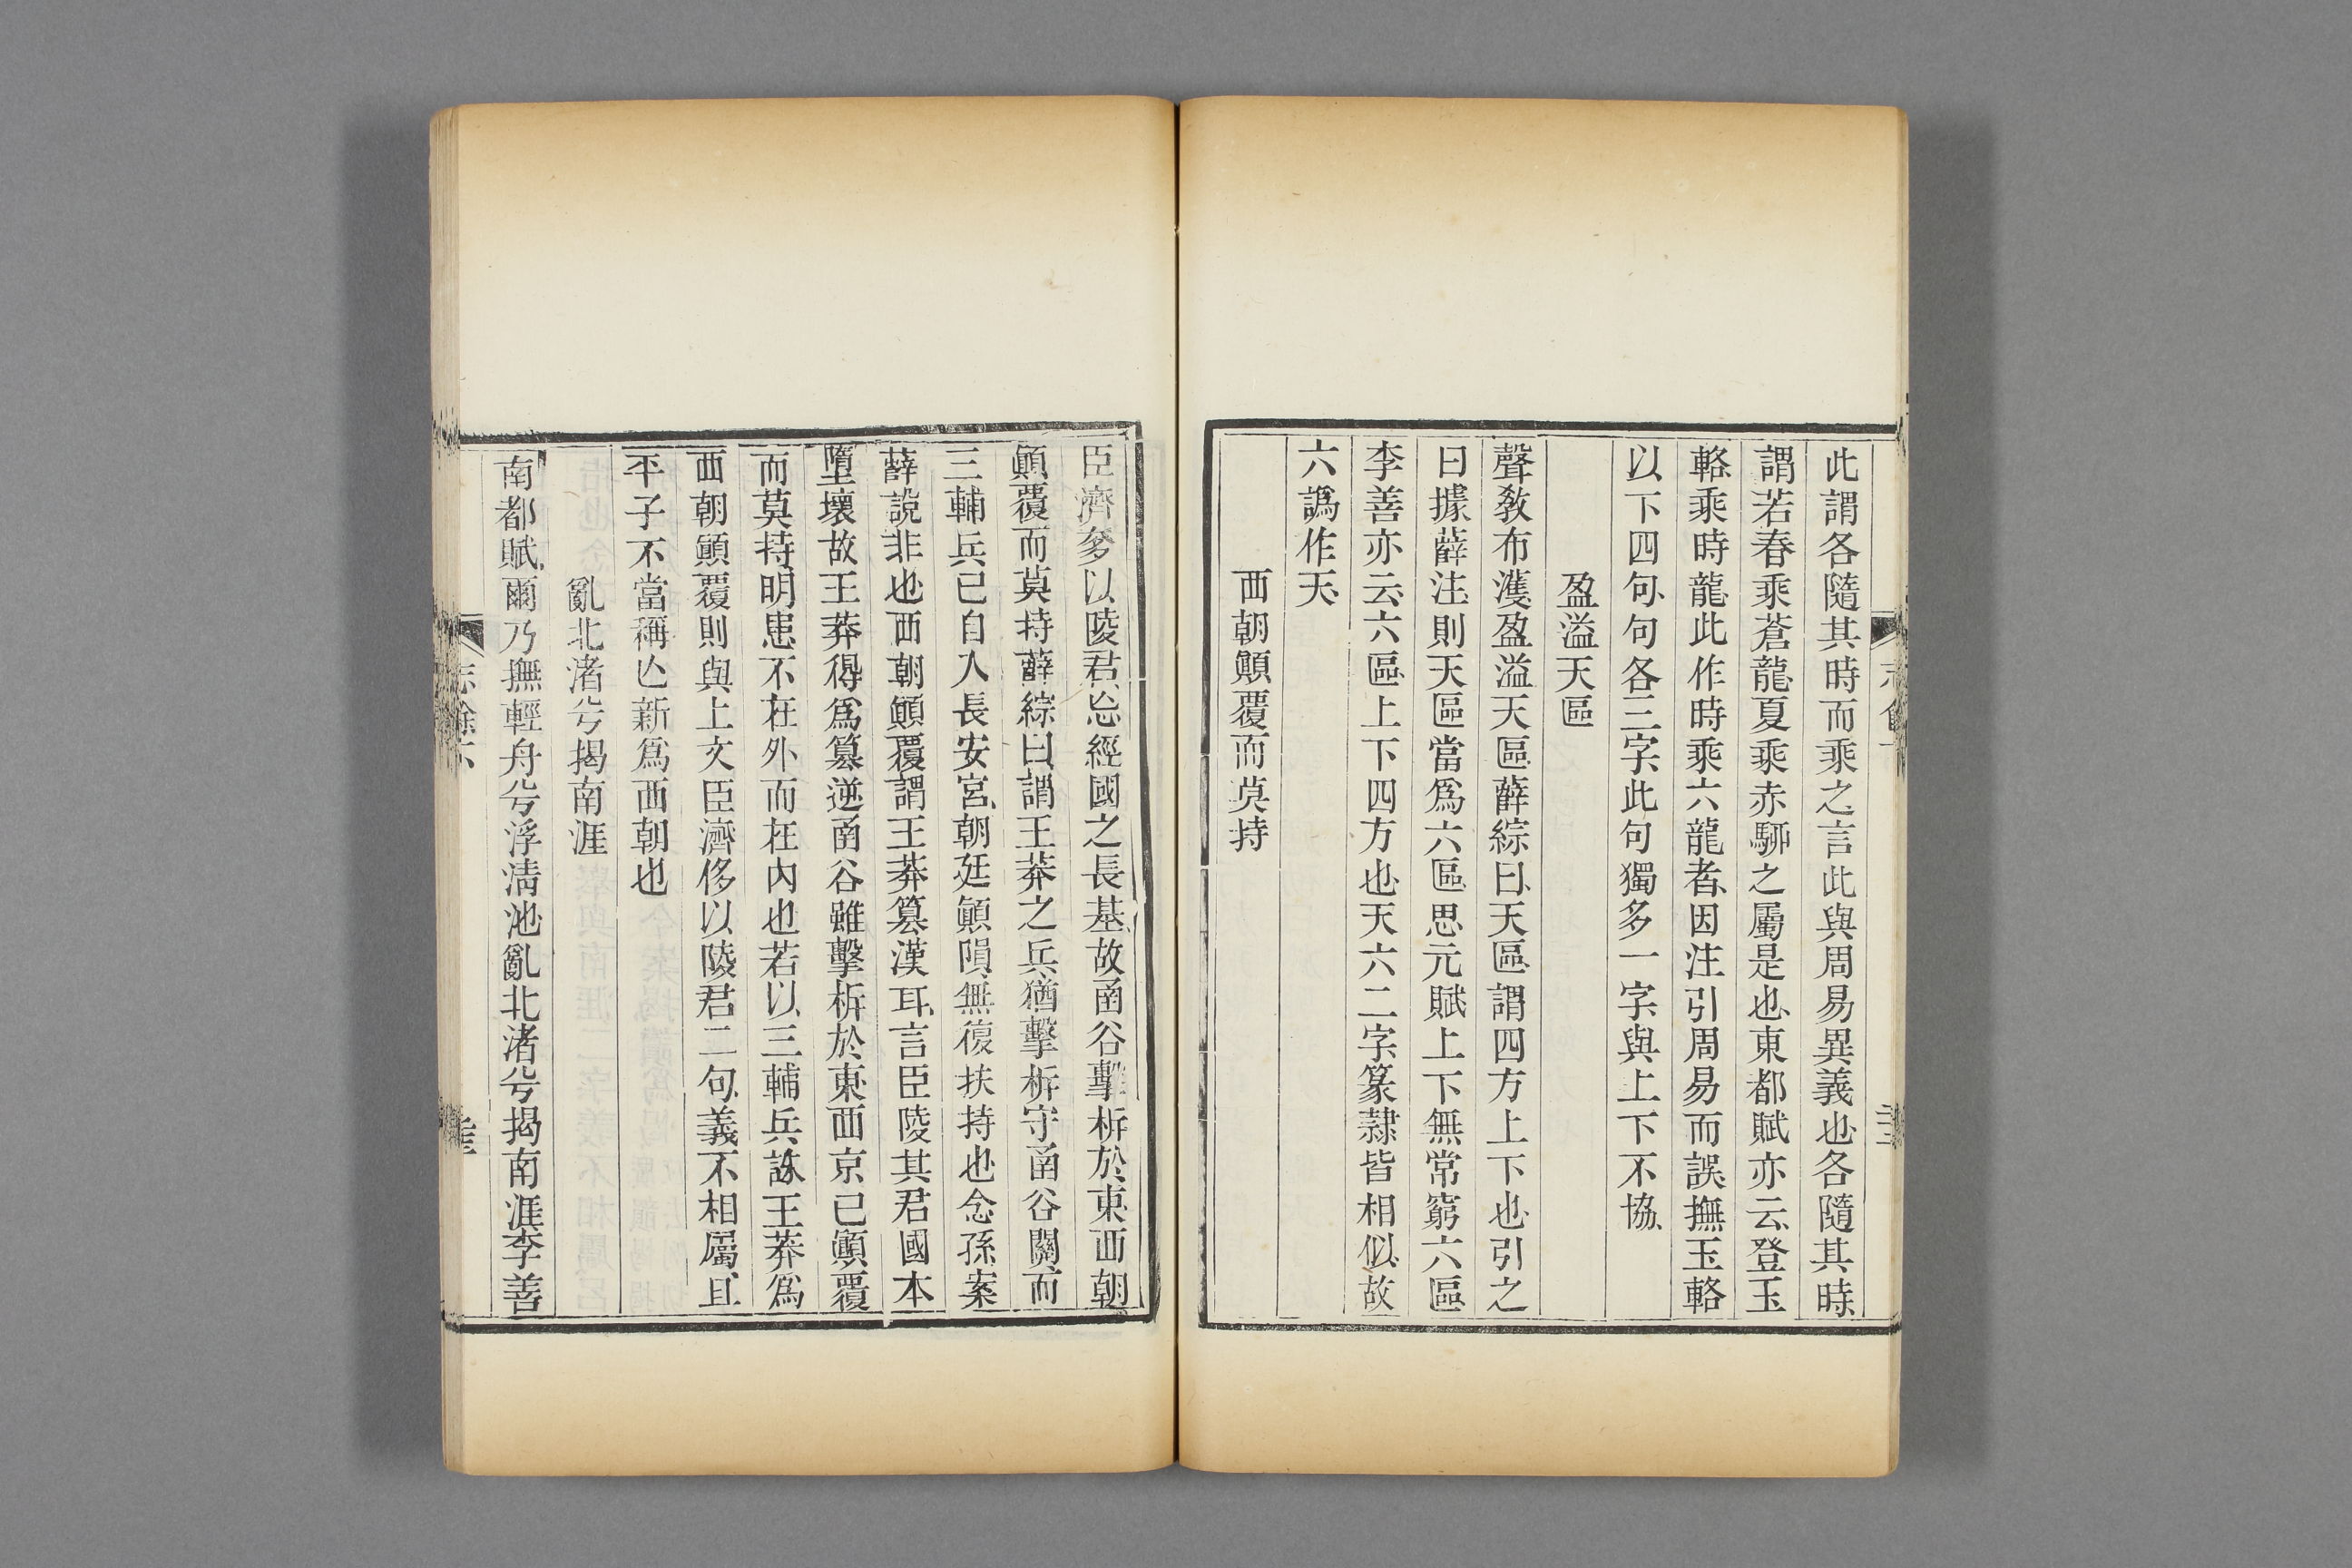 此謂各隨其時而乘之言此與周易異義也各隨其時
謂若春乘蒼龍夏乘赤駵之屬是也東都賦亦云登玉
輅乘時龍此作時乘六龍者因注引周易而誤撫玉輅
以下四句句各三字此句獨多一字與上下不協
盈溢天區
聲敎布濩盈溢天區薛綜曰天區謂四方上下也引之
曰據薛注則天區當爲六區思元賦上下無常窮六區
李善亦云六區上下四方也天六二字篆隸皆相似故
六譌作天
西朝顚覆而莫持
臣濟奓以陵君忘經國之長基故函谷擊柝於東西朝
顚覆而莫持薛綜曰謂王莽之兵猶擊柝守函谷關而
三輔兵已自入長安宮朝廷顚隕無復扶持也念孫案
薛說非也西朝顚覆謂王莽篡漢耳言臣陵其君國本
墮壞故王莽得爲篡逆函谷雖擊柝於東西京已顚覆
而莫持明患不在外而在內也若以三輔兵誅王莽爲
西朝顚覆則與上文臣濟侈以陵君二句義不相屬且
平子不當稱亾新爲西朝也
亂北渚兮揭南涯
南都賦爾乃撫輕舟兮浮清池亂北渚兮揭南涯李善
志餘下